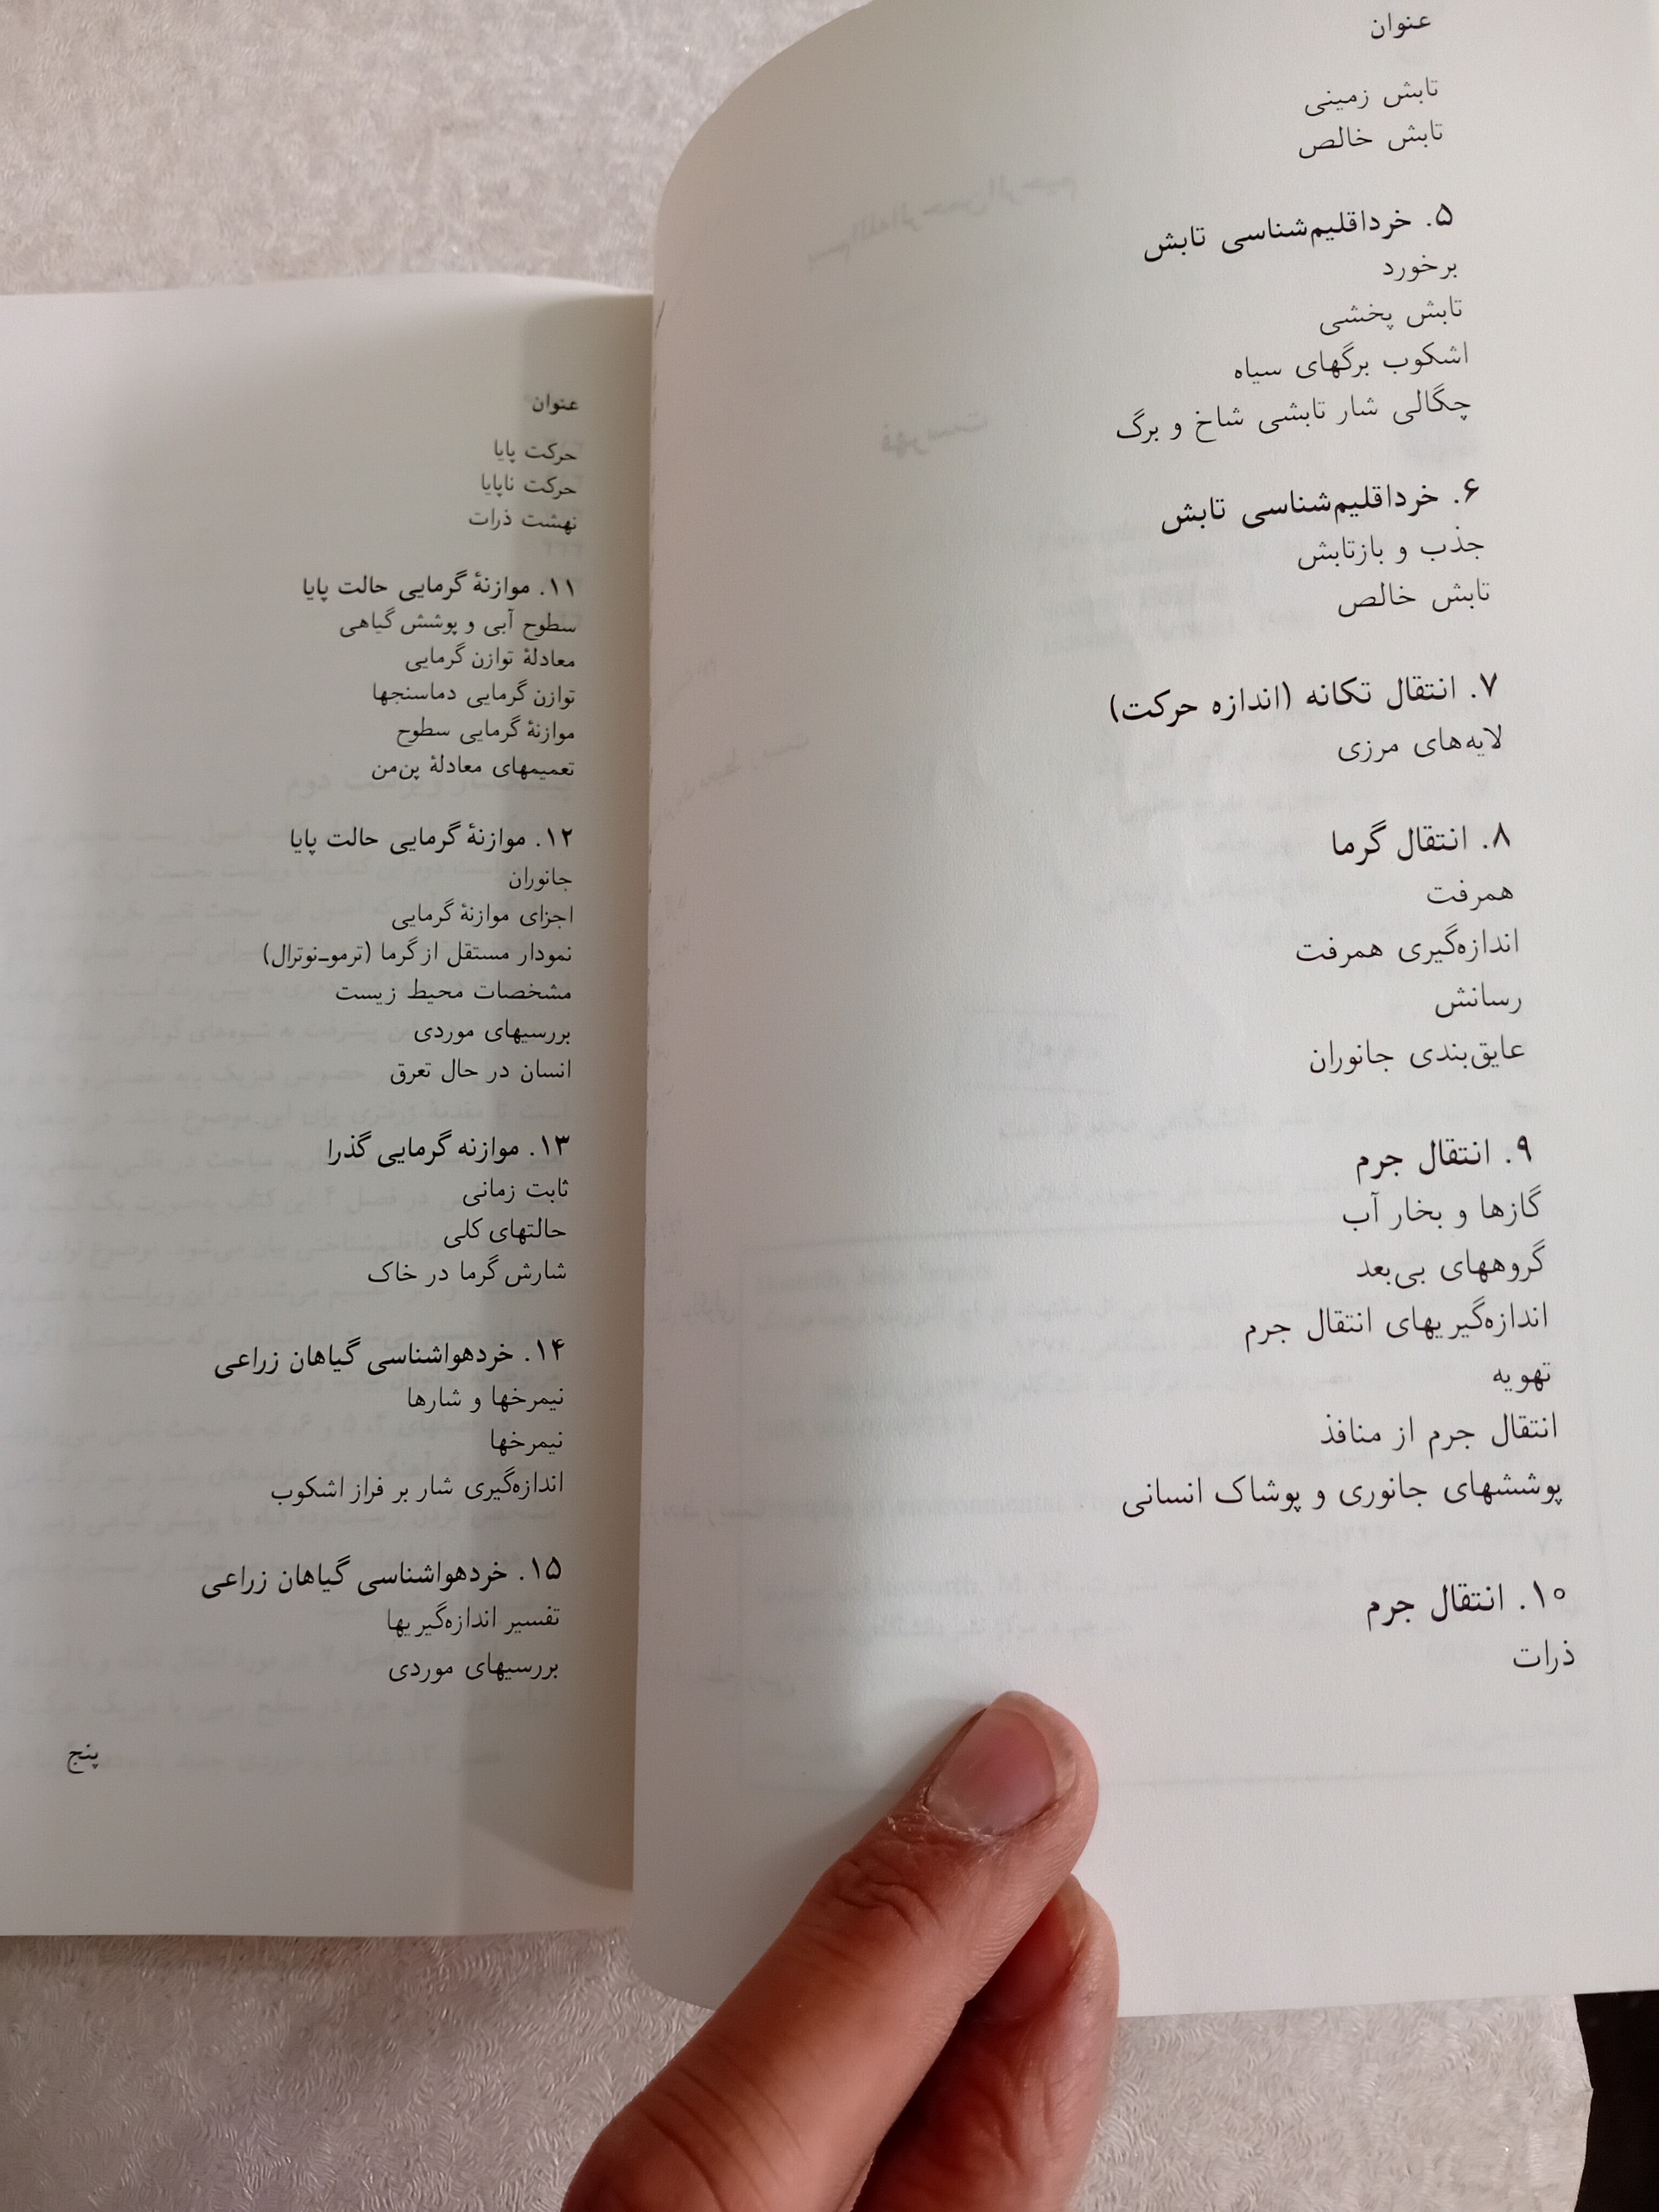 عنوان
تابش زمینی
تابش خالص
۵. خرداقلیم‌شناسی تابش
برخورد
تابش پخشی
اشکوب برگهای سیاه
چگالی شار تابشی شاخ و برگ
۶. خرداقلیم‌شناسی تابش
جذب و بازتابش
تابش خالص
۷. انتقال تکانه (اندازه حرکت)
لایه‌های مرزی
۸. انتقال گرما
همرفت
اندازه‌گیری همرفت
رسانش
عایق‌بندی جانوران
۹. انتقال جرم
گازها و بخار آب
گروههای بی‌بعد
اندازه‌گیریهای انتقال جرم
تهویه
انتقال جرم از منافذ
پوششهای جانوری و پوشاک انسانی
۱۰. انتقال جرم
ذرات
عنوان
حرکت پایا
حرکت ناپایا
نهشت ذرات
۱۱. موازنهٔ گرمایی حالت پایا
سطوح آبی و پوشش گیاهی
معادلهٔ توازن گرمایی
توازن گرمایی دماسنجها
موازنهٔ گرمایی سطوح
تعمیمهای معادلهٔ پن‌من
۱۲. موازنهٔ گرمایی حالت پایا
جانوران
اجزای موازنهٔ گرمایی
نمودار مستقل از گرما (ترمو-نوترال)
مشخصات محیط زیست
بررسیهای موردی
انسان در حال تعرق
۱۳. موازنه گرمایی گذرا
ثابت زمانی
حالتهای کلی
شارش گرما در خاک
۱۴. خردهواشناسی گیاهان زراعی
نیمرخها و شارها
نیمرخها
اندازه‌گیری شار بر فراز اشکوب
۱۵. خردهواشناسی گیاهان زراعی
تفسیر اندازه‌گیریها
بررسیهای موردی
پنج